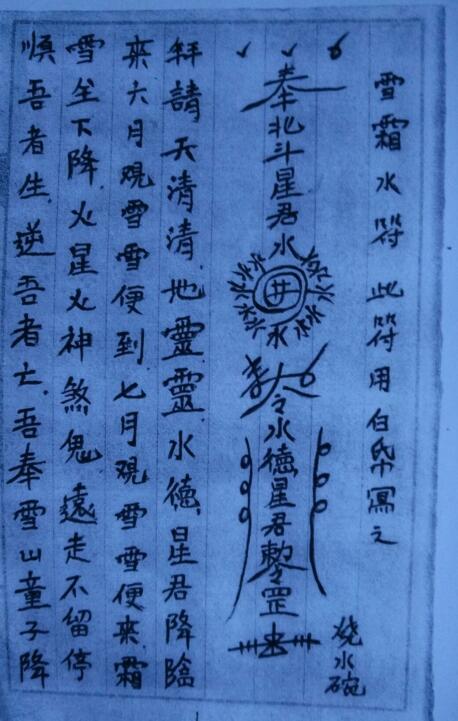 雪霜水符 此符用白帋寫之
烧水碗
奉北斗星君水
井
水
令水德星君敕罡
拜請天清清地靈靈水德星君降臨
來六月覌雪雪便到七月覌雪雪便来霜
雪下降火星火神煞鬼遠走不留停
順吾者生逆吾者亡吾奉雪山童子降